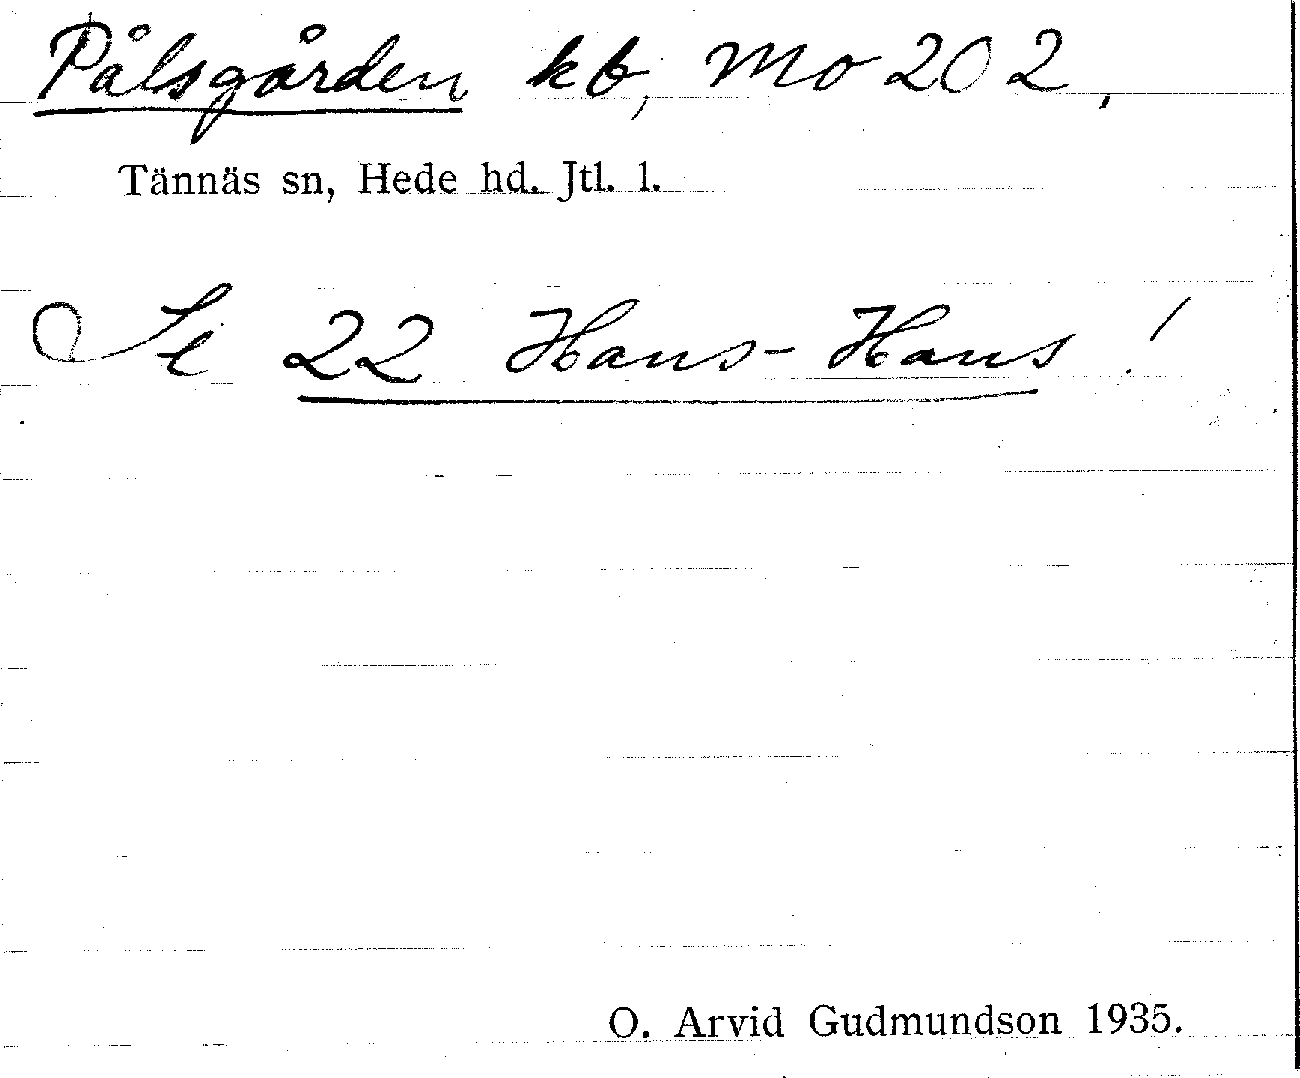 Pålsgården kb, Mo 202,
Tännäs sn, Hede hd. Jtl. l.
Se 22 Hans-Hans!
O. Arvid Gudmundson 1935.